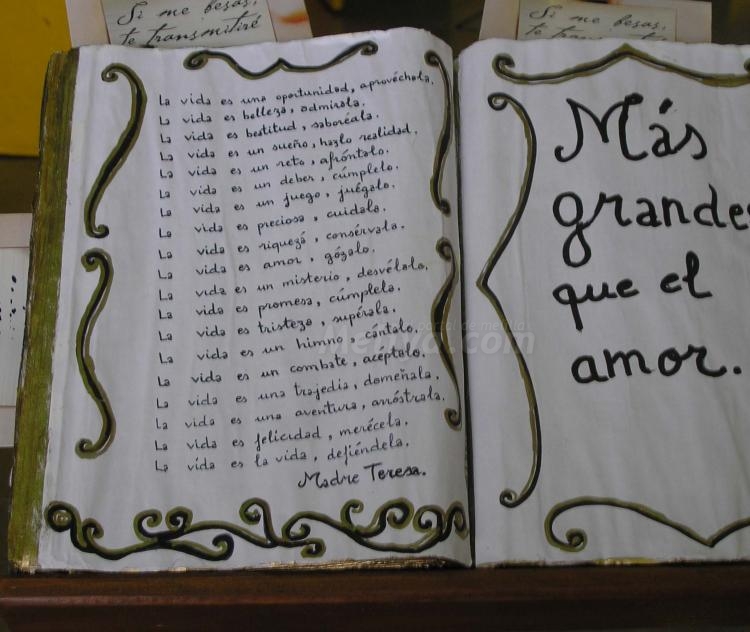 Si me besas,
te transmitiré
Si me besas,
te
La vida es una oportunidad, aprovéchala.
La vida es belleza, admírala.
La vida es beatitud, saboréala.
La vida es un sueño, hazlo realidad.
La vida es un reto, afróntalo.
La vida es un deber, cúmplelo.
La vida es un juego, juégalo.
La vida es preciosa, cuidala.
La vida es riqueza, consérvala.
La vida es amor, gózalo.
La vida es un misterio, desvélalo.
La vida es promesa, cúmplela.
La vida es tristeza, supérala.
La vida es un himno, cántalo.
La vida es un combate, acéptalo.
La vida es una tragedia, doméñala.
La vida es una aventura, arróstrala.
La vida es felicidad, merécela.
La vida es la vida, defiéndela.
Madre Teresa.
Más
grandes
que el
amor.